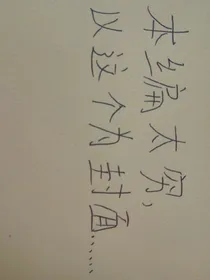 本编太穷，
以这个为封面……